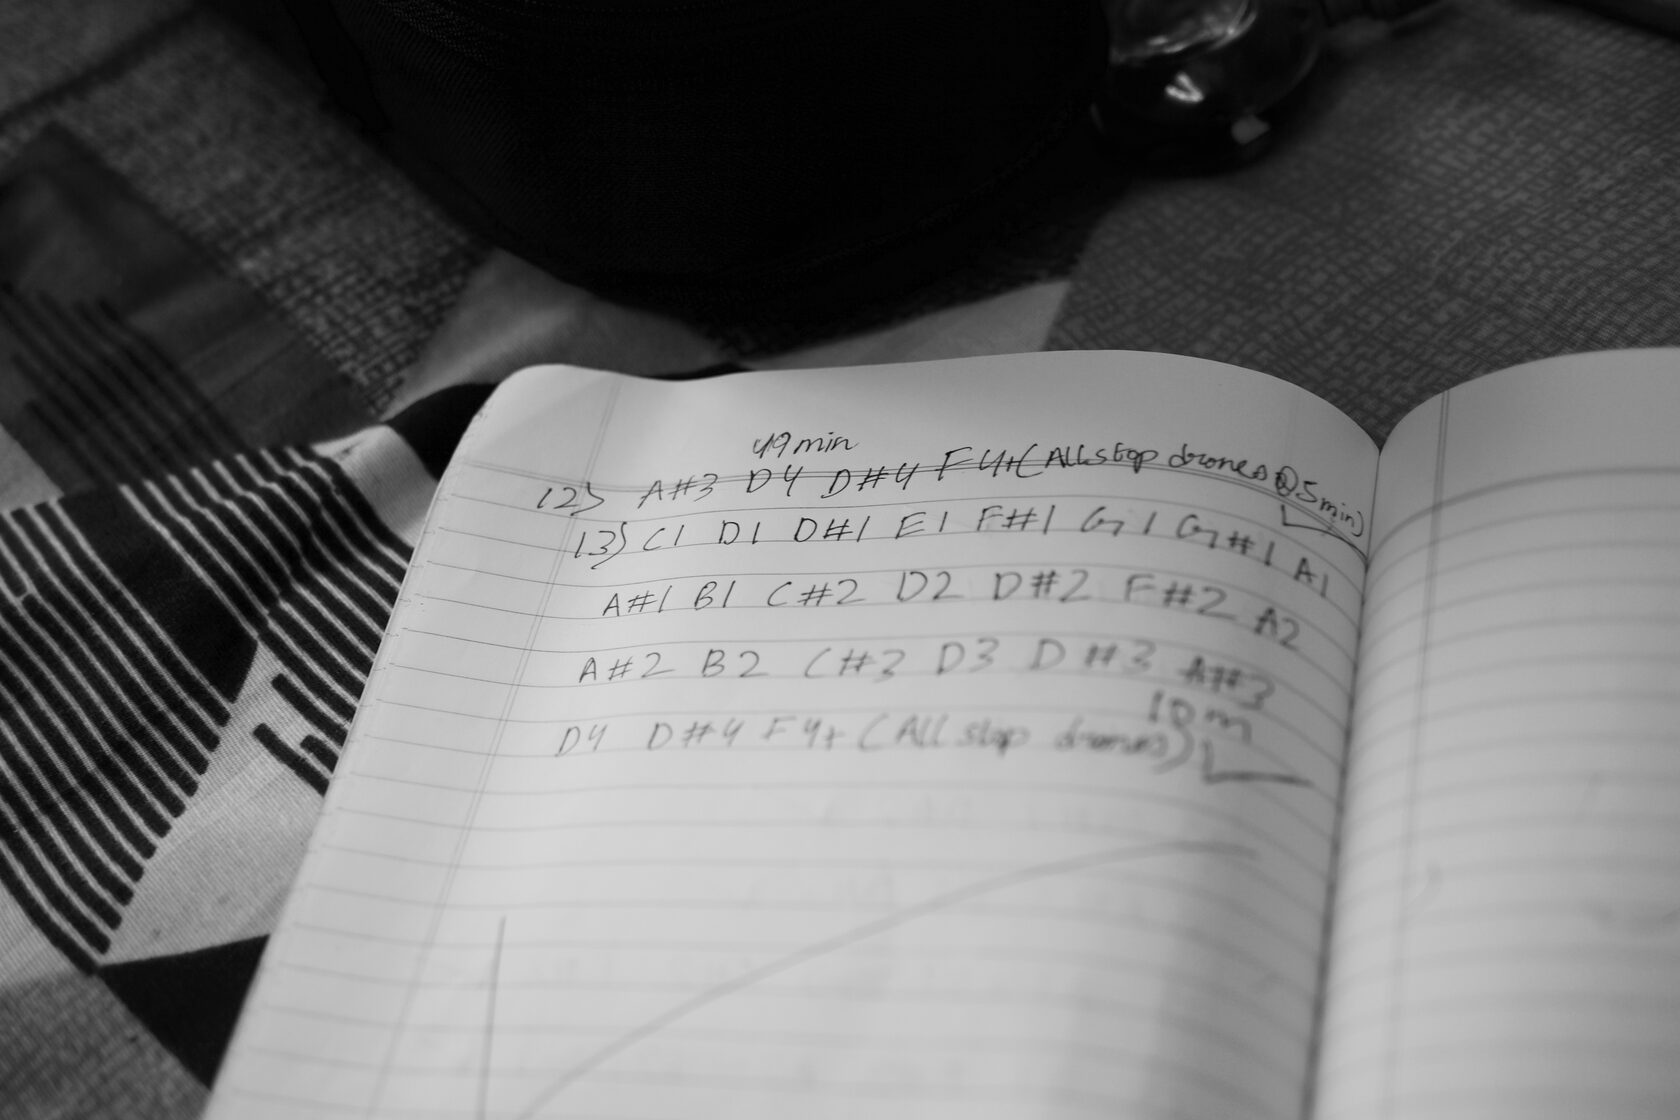 49 min
12) A#3 D4 D#4 F4+(All stop drones @ 5min)
13) C1 D1 D#1 E1 F#1 G1 G#1 A1
A#1 B1 C#2 D2 D#2 F#2 A2
A#2 B2 C#3 D3 D#3 A#3
10m
D4 D#4 F4+ (All stop drones)